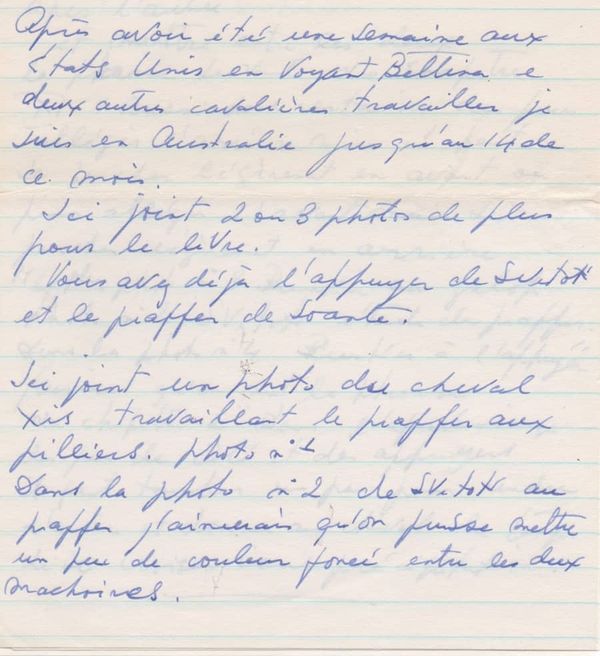 Après avoir été une semaine aux
États Unis en voyant Bettina e
deux autres cavalières travailler je
suis en Australie jusqu'au 14 de
ce mois.
Ici joint 2 ou 3 photos de plus
pour le livre.
Vous avez déjà l'appuyer de
et le piaffer de Soante.
Ici joint un photo du cheval
travaillant le piaffer aux
pilliers. photo n° 1
Dans la photo n° 2 de au
piaffer j'aimerais qu'on puisse mettre
un peu de couleur foncé entre les deux
machoires.